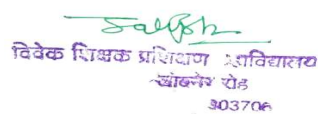 विवेक शिक्षक प्रशिक्षण महाविद्यालय
रोड
303706